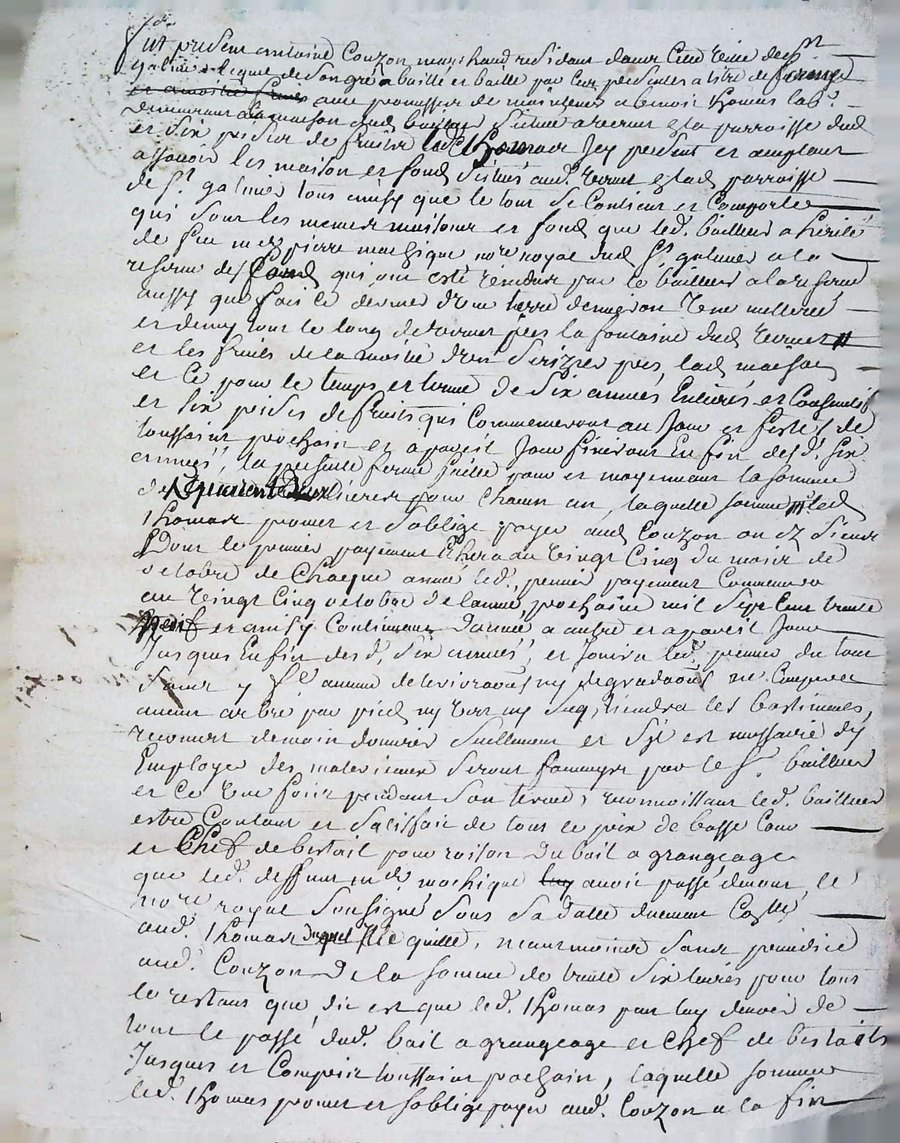 fut présent antoine Couzon marchand résidant dans cette ville de St
galmier lequel de son gré a baillé et baille par ces présentes a titre de ferme
avec promesse de maintenir a benoit thomas lab.
demeurant a la maison dud. bailleur située a vernet et la parroisse dud
et six prises de fruits led thomas icy présent et acceptant
assavoir les maison et fond situés aud. vernet et lad parroisse
de St galmier tous ainsy que le tout se contient et Comporte
qui sont les memes maisons et fond que led. bailleur a hérité
de feu me pierre machique nore royal dud St galmier a la
reserve des fond qui ont esté vendus par le bailleur a la reserve
aussy que fait ce dernier d'une terre d'environ une metterée
et demy tout le long de vernet près la fontaine dud vernet
et les fruits de la moitié d'un serizier près lad maison
et Ce pour le temps et terme de six années Entières et Consecutives
et six prises de fruits qui Commenceront au Jour et feste de
toussaint prochain et a pareil Jour finiront En fin desd. six
années, la présente ferme faitte pour et moyennant la somme
de quarante deux livres pour chacun an, laquelle somme led
thomas promet et s'oblige payer aud Couzon ou ez siens
Dont le premier payement Echera au vingt Cinq du mois de
octobre de chaque année led. premier payement Commencera
au vingt Cinq octobre de l'année prochaine mil sept Cent trente
neuf et ainsy Continuer d'année a autre et a pareil Jour
Jusques En fin desd. six années, et jouira led. preneur du tout
sans y fe aucune deteriorãons ny degradaõns ne Coupera
aucun arbre par pied ny vert ny sec, tiendra les bastiments
recouvert de main d'ouvrier seullement et s'il est nécessaire d'y
Employer des matériaux seront fournys par le sr. bailleur
et Ce une fois pendant son terme, reconnoissant led. bailleur
estre Content et satisfait de tout le prix de basse Cour
et Chef de bestail pour raison du bail a grangeage
que led. deffunt me machique luy avoit passé devant le
nore royal soussigné sous sa datte duement Collé
aud. thomas duquel Il le quitte, neantmoins sans prejudice
aud. Couzon de la somme de trente six livres pour tous
le restant que dit est que led. thomas peut luy devoir de
tout le passé dud. bail a grangeage et chef de bestails
Jusques et Compris toussaint prochain, laquelle somme
led. thomas promet et s'oblige payer aud. Couzon a la fin